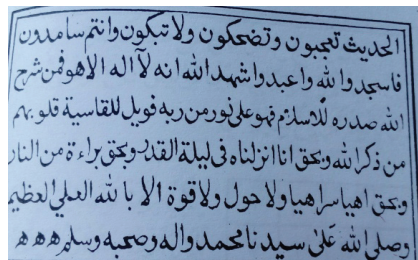 الحديث تعجبون وتضحكون ولا تبكون وانتم سامدون
فاسجدوا لله واعبدوا شهد الله انه لا اله الا هو فمن شرح
الله صدره للاسلام فهو على نور من ربه فويل للقاسية قلوبهم
من ذكر الله وبحق انا انزلناه فى ليلة القدر وبحق براءة من النار
وبحق اهيا سراهيا ولا حول ولا قوة الا بالله العلي العظيم
وصلى الله على سيدنا محمد واله وصحبه وسلم ه ه ه